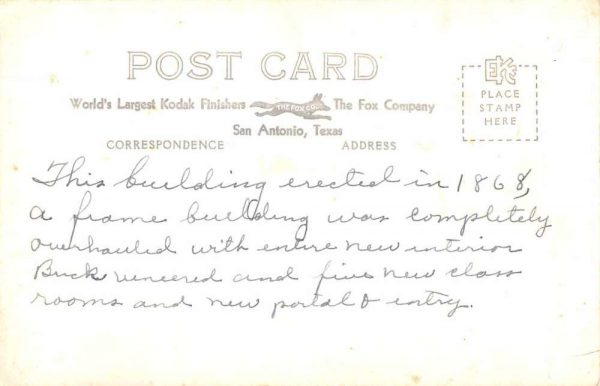 POST CARD
World's Largest Kodak Finishers THE FOX CO. The Fox Company
San Antonio, Texas
CORRESPONDENCE ADDRESS
EKC
PLACE
STAMP
HERE
This building erected in 1868,
a frame building was completely
overhauled with entire new interior
Brick veneered and five new class
rooms and new portal & entry.